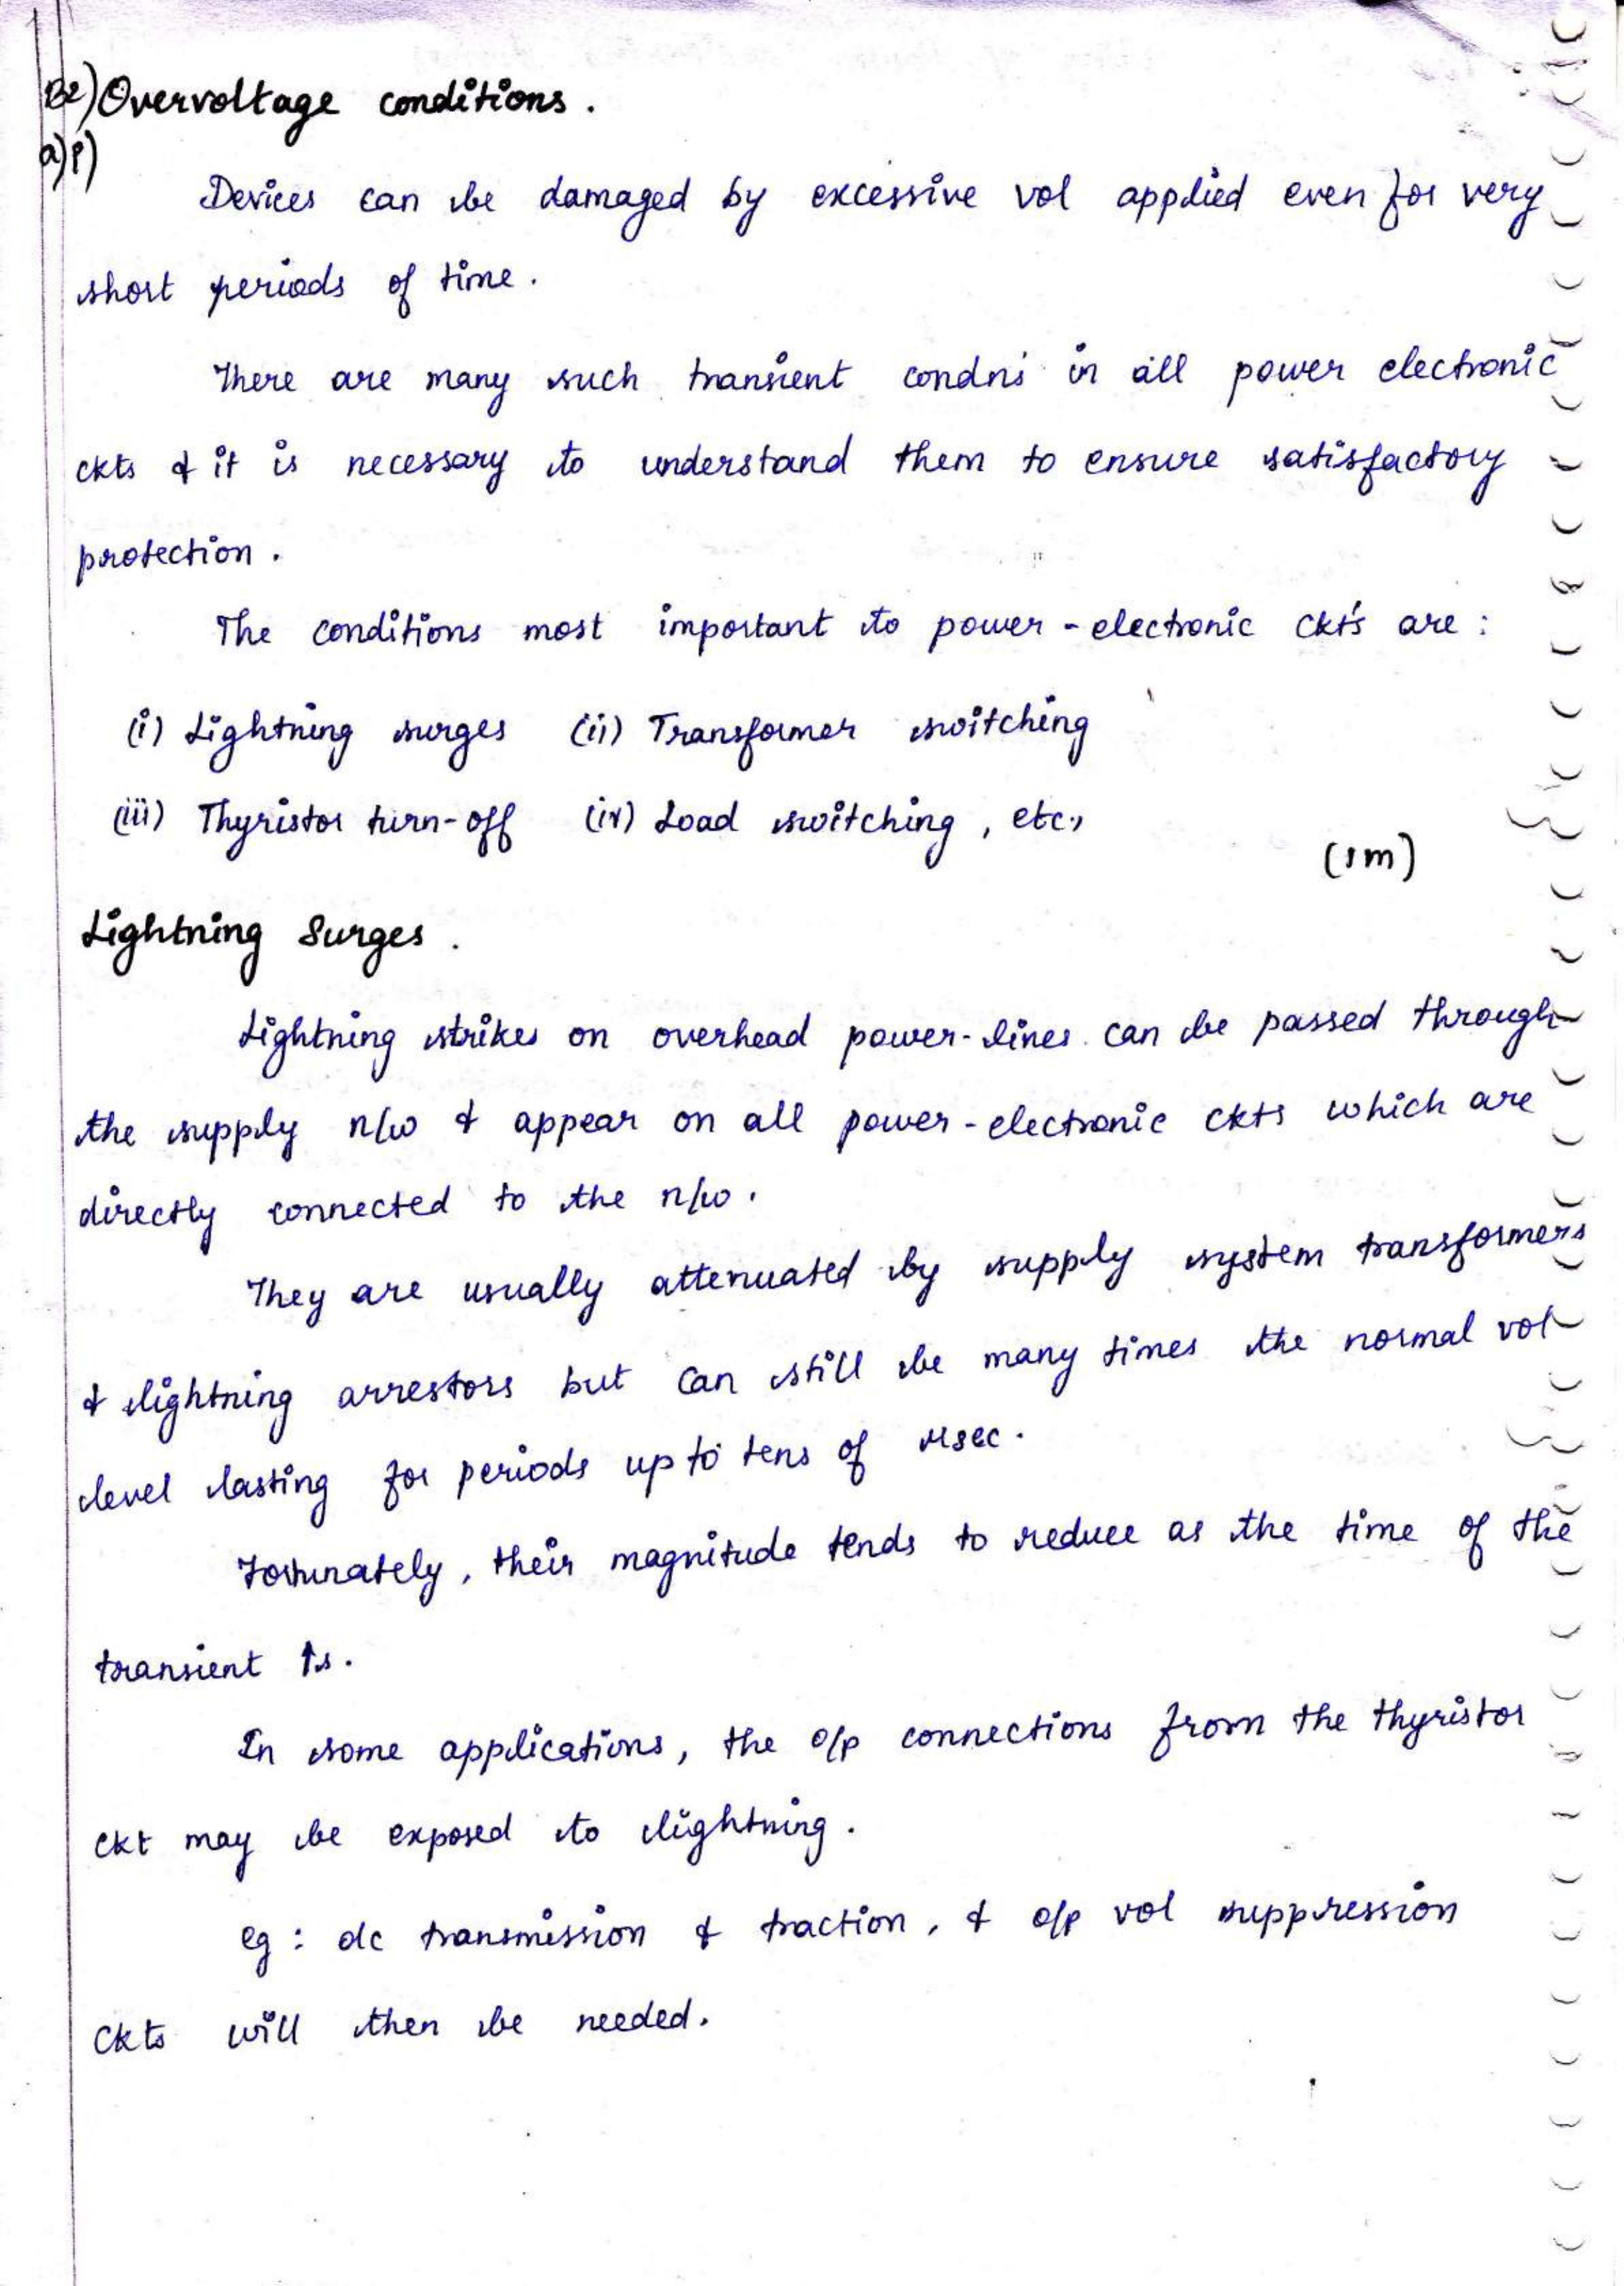 B2) Overvoltage conditions.
a) i)
Devices can be damaged by excessive vol applied even for very
short periods of time.
There are many such transient condns in all power electronic
ckts & it is necessary to understand them to ensure satisfactory
protection.
The conditions most important to power-electronic ckts are:
(i) Lightning surges (ii) Transformer switching
(iii) Thyristor turn-off (iv) Load switching, etc.,
(1m)
Lightning Surges.
Lightning strikes on overhead power-lines can be passed through
the supply n/w & appear on all power-electronic ckts which are
directly connected to the n/w.
They are usually attenuated by supply system transformers
& lightning arrestors but can still be many times the normal vol
level lasting for periods up to tens of μsec.
Fortunately, their magnitude tends to reduce as the time of the
transient ↑s.
In some applications, the o/p connections from the thyristor
ckt may be exposed to lightning.
eg: dc transmission & traction, & o/p vol suppression
ckts will then be needed.